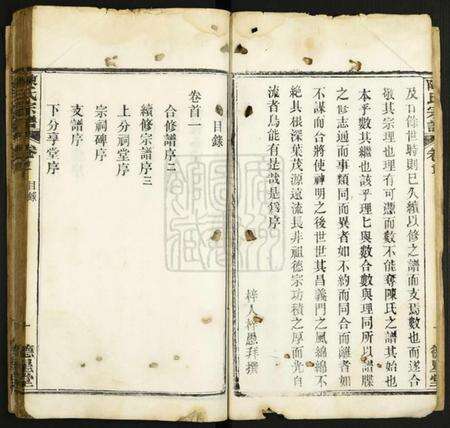 及百餘世時則已久續以修之譜而支焉數也而遂合
敬其宗理也理有可憑而數不能奪陳氏之譜其始也
本乎數其繼也該乎理七與數合數與理同所以譜牒
之修志通而事類同而異者如不約而同合而離者如
不謀而合將使神明之後世世其昌義門之風綿綿不
絶具根深葉茂源遠流長非祖德宗功積之厚而光自
流者烏能有是哉是爲序
陳氏宗譜
卷首
目錄
卷首一
合修譜序二
續修宗譜序三
上分祠堂序
宗祠碑序
支譜序
下分享堂序
德星堂